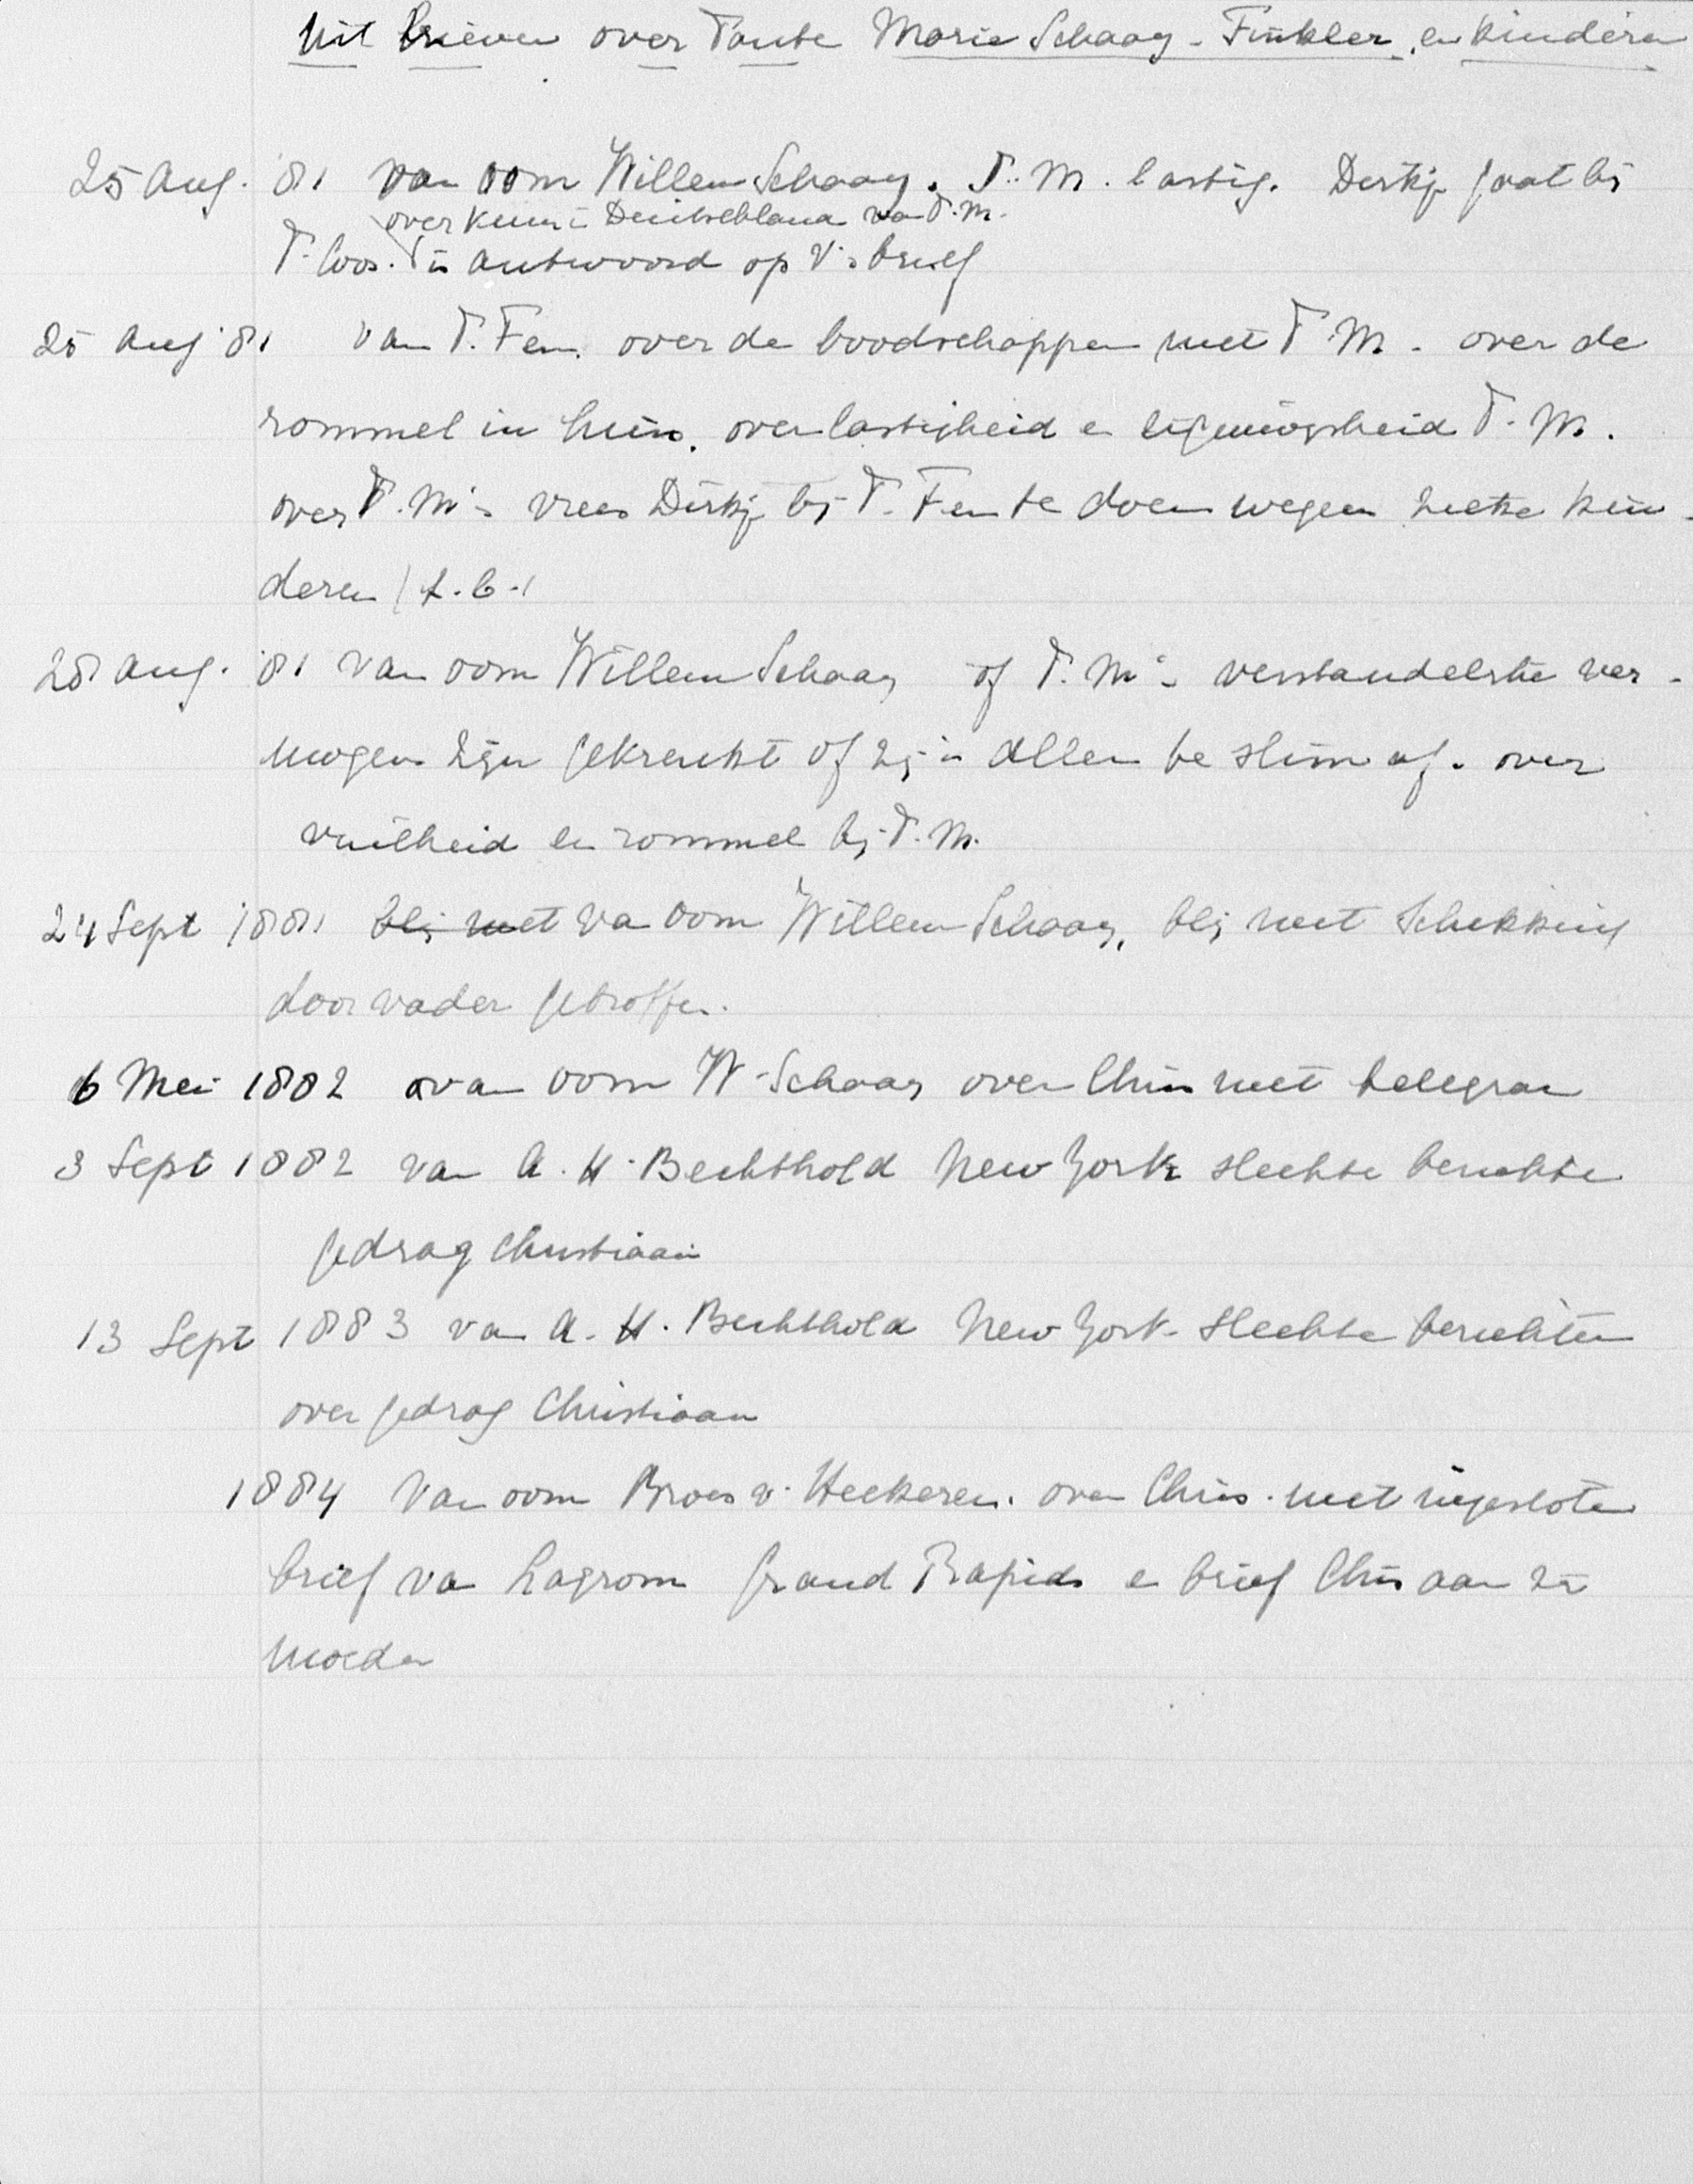 Uit Brieven over Tante Marie Schaay-Finkler en kinderen
25 Aug. '81 van oom Willem Schaay. T.M. lastig. Dirkje gaat bij
over kuur i Duitschland van T.M.
T. Coos. in antwoord op V's brief
25 Aug '81 van T. Fem. over de boodschappen met T.M. over de
rommel in huis. over lastigheid en T.M.
over T.M's vrees Dirkje bij T. Fem te doen wegens zieke kin-
deren (t.b.)
28 Aug. '81 van oom Willem Schaay of T.M's verstandelijke ver-
mogens zijn gekrenkt of zij is allen te slim af. over
vuilheid en rommel bij T.M.
24 Sept 1881 blij met van oom Willem Schaay, blij met schikking
door vader getroffen.
6 Mei 1882 van oom W. Schaay over Chris met telegram
3 Sept 1882 van A. H. Bechthold New York slechte berichten
gedrag Christiaan
13 Sept 1883 van A. H. Bechthold New York slechte berichten
over gedrag Christiaan
1884 van oom Broes v. Heekeren. over Chris. met ingesloten
brief van Lagrom Grand Rapids en brief Chris aan zn
moeder